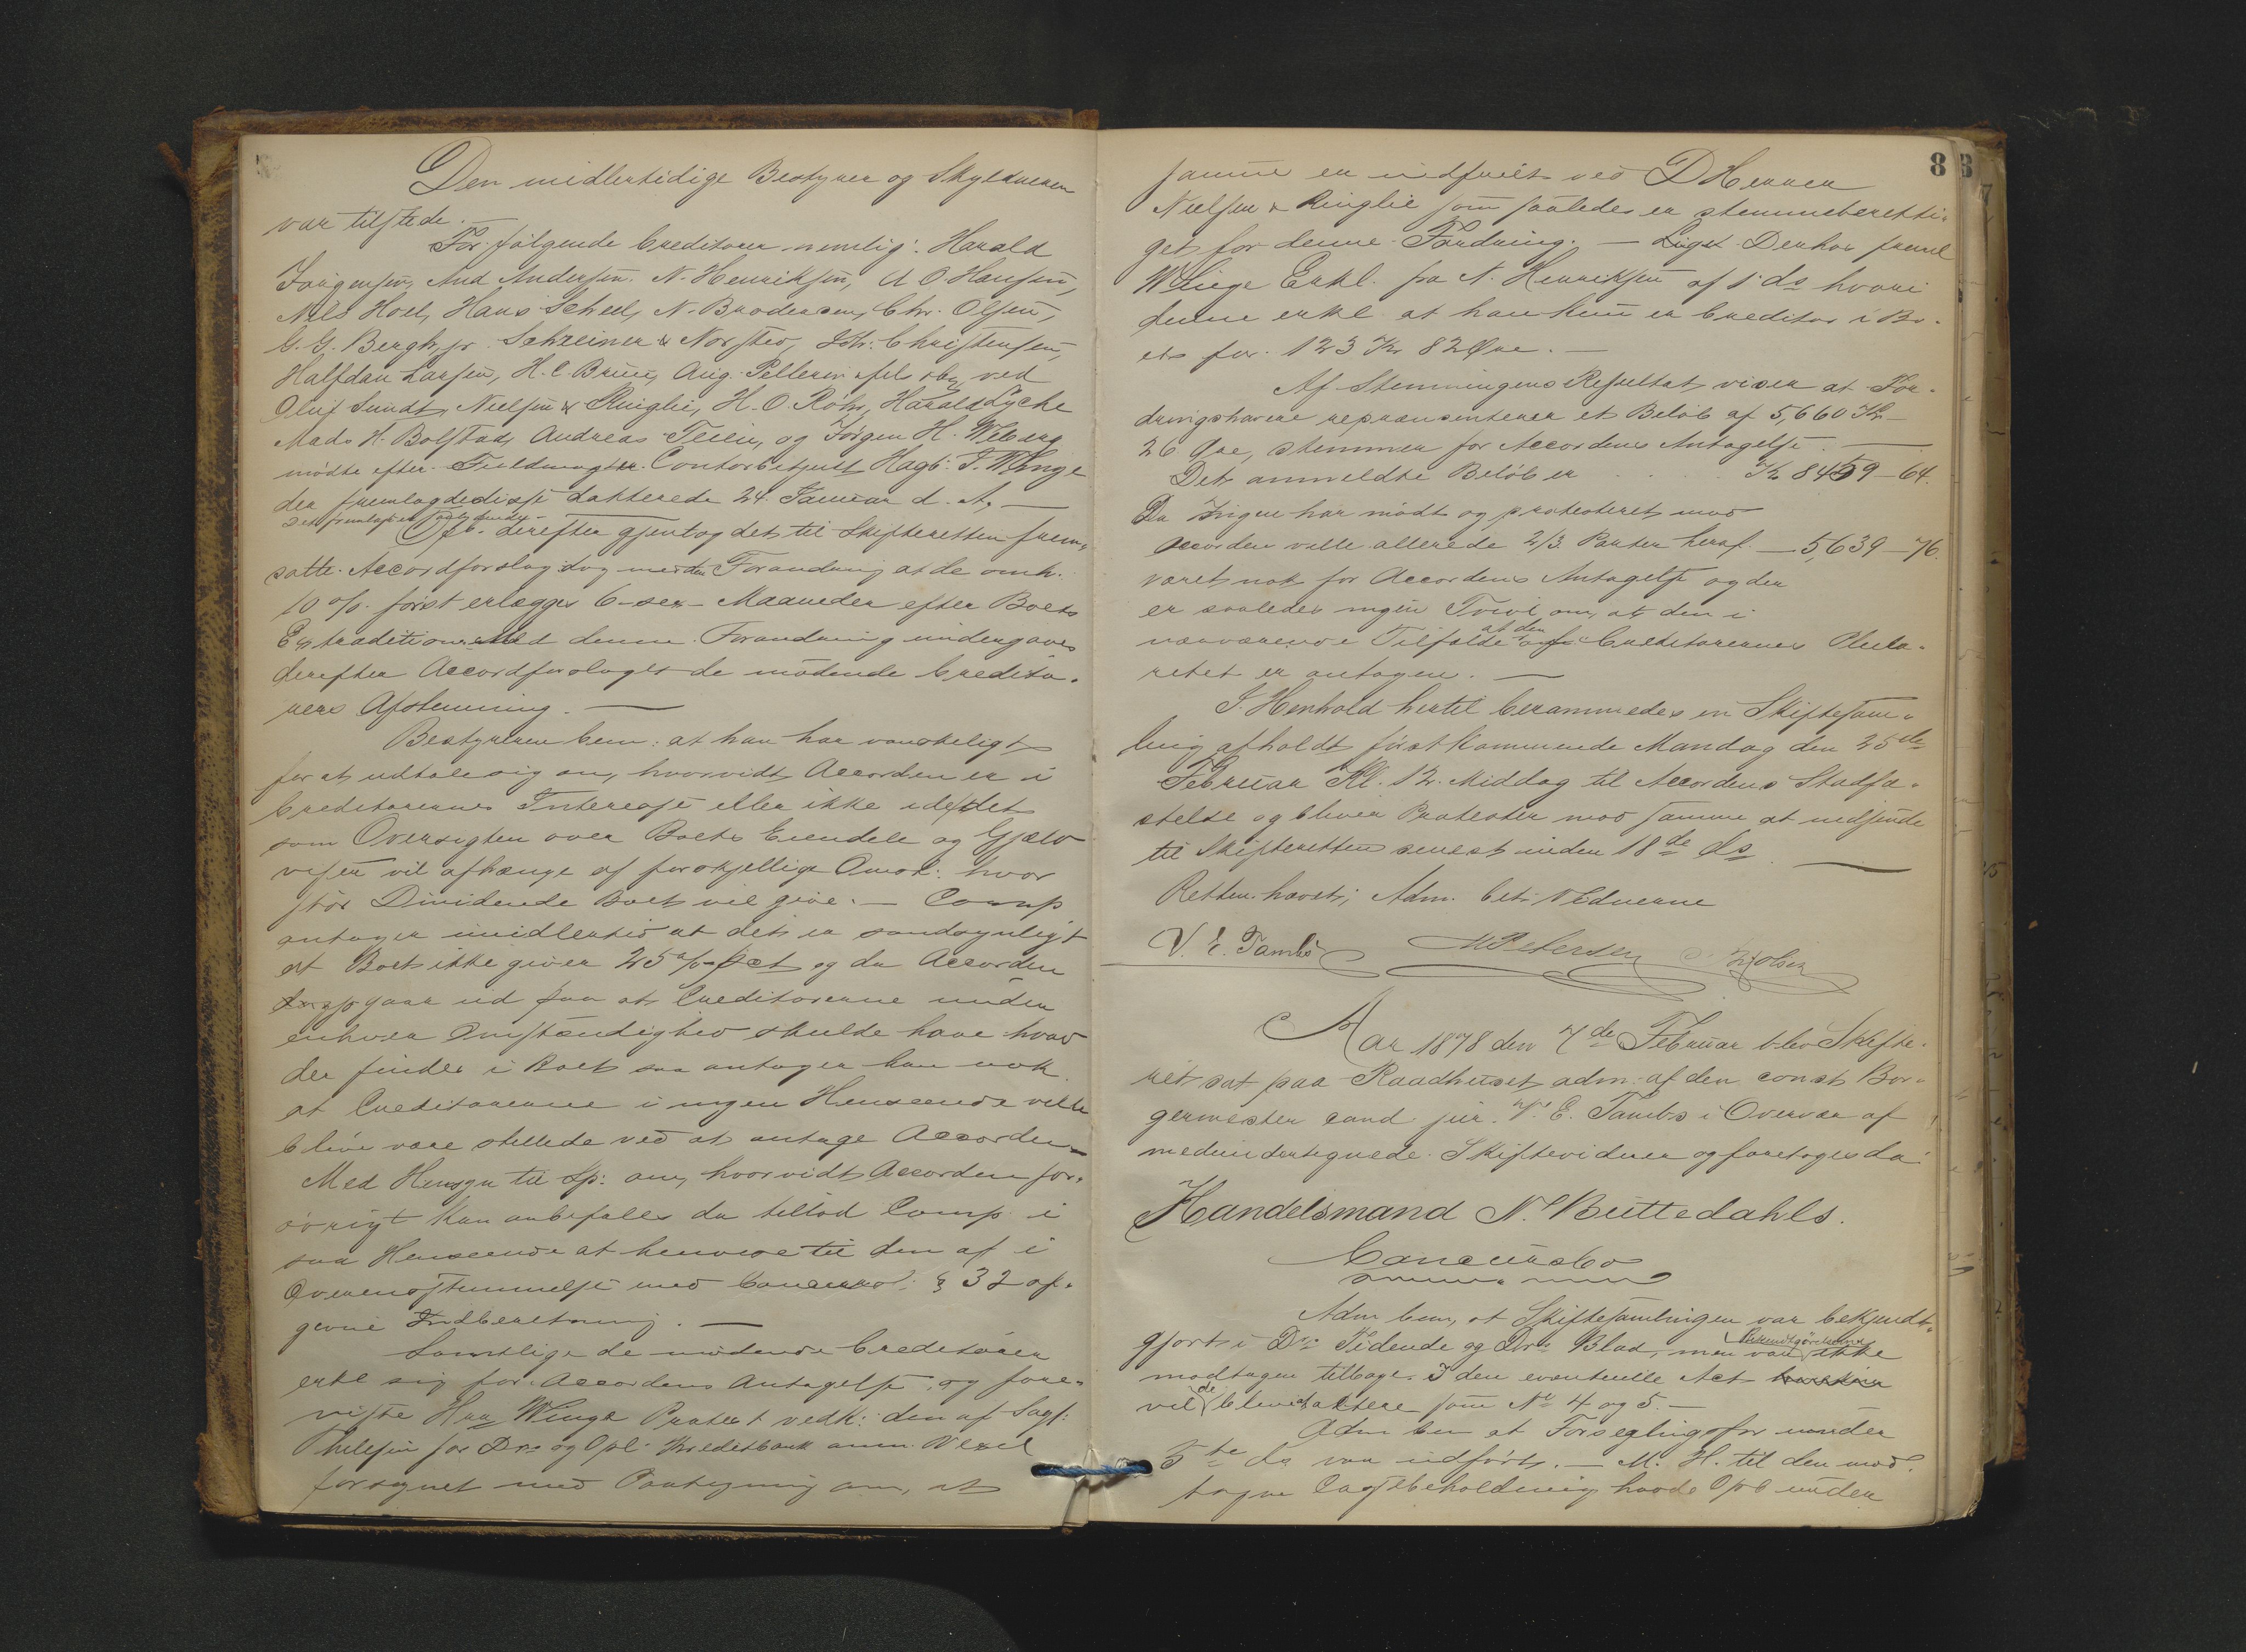 Den midlertidige Bestyrer og Skyldneren
var tilstede.—
For følgende Creditorer nemlig: Harald
Jørgensen, And Andersen. N. Henriksen, A O Hansen,
Nils Hoel, Hans Scheel, N. Brodersen, Chr. Olsen,
G. G. Bergh jr. Schreiner & Norsted, Joh. Christensen,
Halfdan Larsen, H. C. Bruun, Aug. Pellerin fils ved
Oluf Sundt, Nielsen & Ringlie, H. O. Röhr, Harald Lyche
Mads H. Bolstad, Andreas Teien, og Jørgen H. Wiberg
mødte efter Fuldmagter Contorbetjent Hagb. J. Winge
der fremlagde disse datterede 24. Januar d. A, —
Opb. derefter gjentog det til Skifteretten frem-
satte Accordforslag dog med den Forandring at de omh.
10 % først erlægges 6 -sex- Maaneder efter Boets
Extradition. Med denne Forandring undergaves
derefter Accordforslaget de mødende Credito-
rers Afstemning. —
Bestyreren bem: at han har vanskeligt
for at udtale sig om, hvorvidt Accorden er i
Creditorernes Interesse eller ikke idet det
som Oversigten over Boets Eiendele og Gjæld
viser vil afhænge af forskjellige Omst: hvor
stor Dividende Boet vil give. — Comp
antager imidlertid at det er sandsynligt
at Boet ikke giver 25 % pct og da Accorden
gaar ud paa at Creditorerne under
enhver Omstændighed skulde have hvad
der findes i Boet saa antager han nok
at Creditorerne i ingen Henseende ville
blive værre stillede ved at antage Accorden —
Med Hensyn til Sp: om, hvorvidt Accorden for-
øvrigt kan anbefales da tillod Comp. i
saa Henseende at henvise til den af i
Overensstemmelse med Concursl. § 32 af-
givne Indberetning. —
Samtlige de mødende Creditorer
erkl sig for Accordens Antagelse, og fore-
viste Hrr Winge Protest vedk: den af Sagf:
Thilesen for Drs og Opl. Kreditbank anm. Vexel
forsynet med Paategning om, at
8
samme er indfriet ved D Herrer
Nielsen & Ringlie som saaledes er stemmeberetti-
get for denne Fordring. — Ligs. Derhos freml
Winge Erkl. fra N. Henriksen af 1. ds hvori
denne erkl at han kun er Creditor i Bo-
et for 123 Kr 82 Øre. —
Af Stemningens Resultat viser at For-
dringshavere repræsenterer et Beløb af 5,660 Kr
26 Øre, stemmer for Accordens Antagelse. —
Det anmeldte Beløb er . . . . Kr 8459-64.
Da Ingen har mødt og protesteret mod
Accorden ville allerede 2/3 Parter heraf — 5,639-76.
været nok for Accordens Antagelse og der
er saaledes ingen Tvivl om, at den i
nærværende Tilfælde at den af Creditorernes Plura-
litet er antagen. —
I. Henhold hertil berammedes en Skiftesam-
ling afholdt førstkommende Mandag den 25de
Februar Kl. 12. Middag til Accordens Stadfæ-
stelse og bliver Protester mod samme at indsende
til Skifteretten senest inden 18de ds. —
Retten hævet; Adm. bet. Vidnerne
V. E. Tambs M Petersen Holsen
Aar 1878 den 7de Februar blev Skifte-
ret sat paa Raadhuset adm. af den const Bor-
germester cand. jur. V. E. Tambs i Overvær af
medundertegnede Skiftevidner og foretoges da:
Handelsmand N. Büttedahls.
Concursbo
Adm bem, at Skiftesamlingen var bekjendt-
gjort i Drs Tidende og Drs Blad, men var Bekjendtgjørelserne ikke
modtagen tilbage. I den eventuelle Act
vil de blive aktere som No 4 og 5. —
Adm bem at Forseglingsfor under
5te ds var udført. — M. H. til den mod-
tagne Cassebeholdning havde Opb under